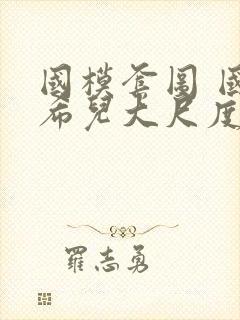 國模套圖 國
希兒大尺度
羅志勇